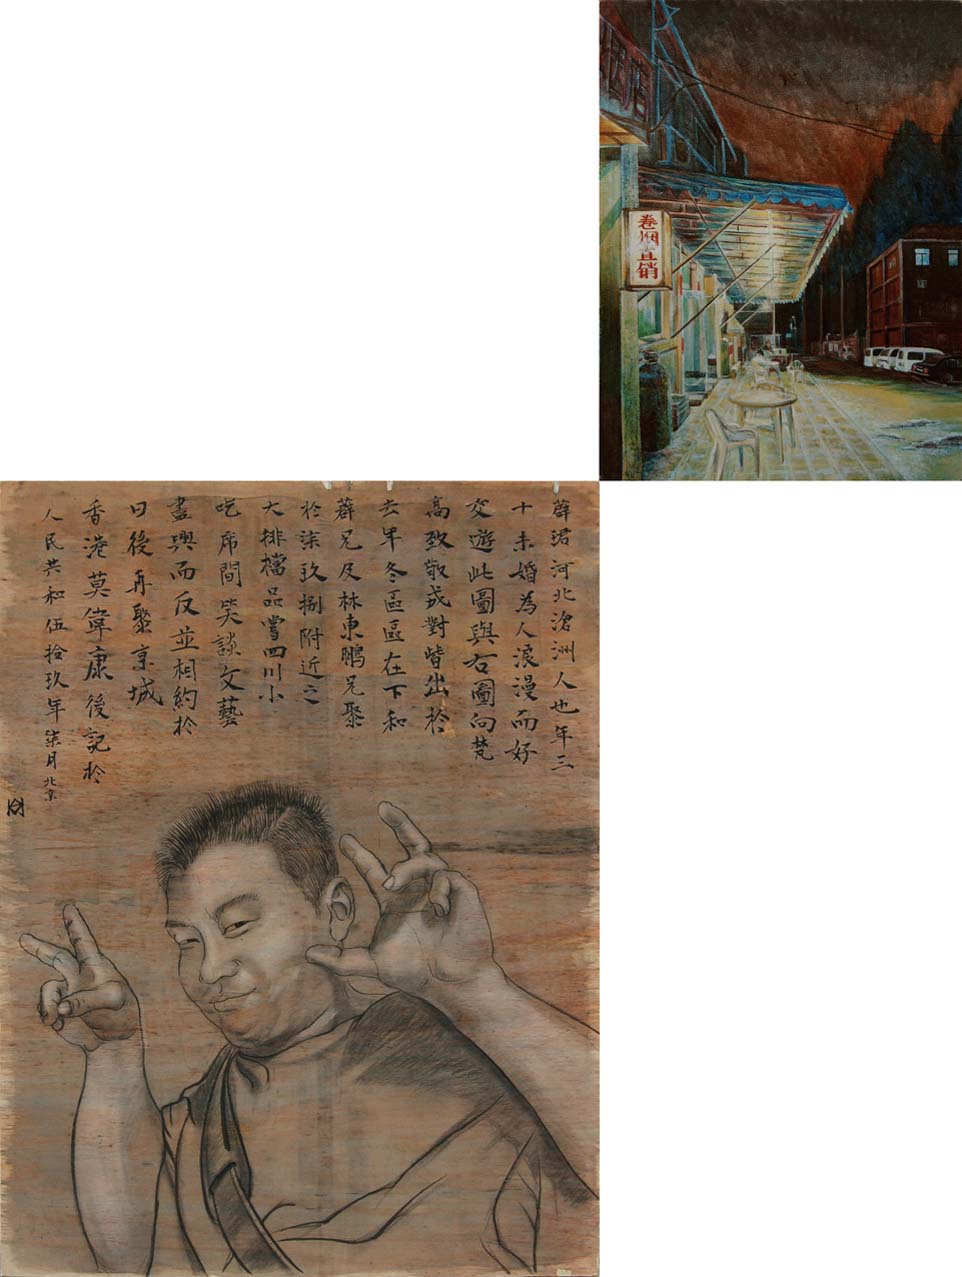 卷烟直销
薜珺河北滄洲人也年三
十未婚為人浪漫而好
交遊此圖與右圖向梵
高致敬或對皆出於
去年冬區區在下和
薜兄及林東鵬兄聚
於柒玖捌附近之
大排檔品嘗四川小
吃席間笑談文藝
盡興而反並相約於
日後再聚京城
香港莫偉康後記於
人民共和伍拾玖年柒月北京